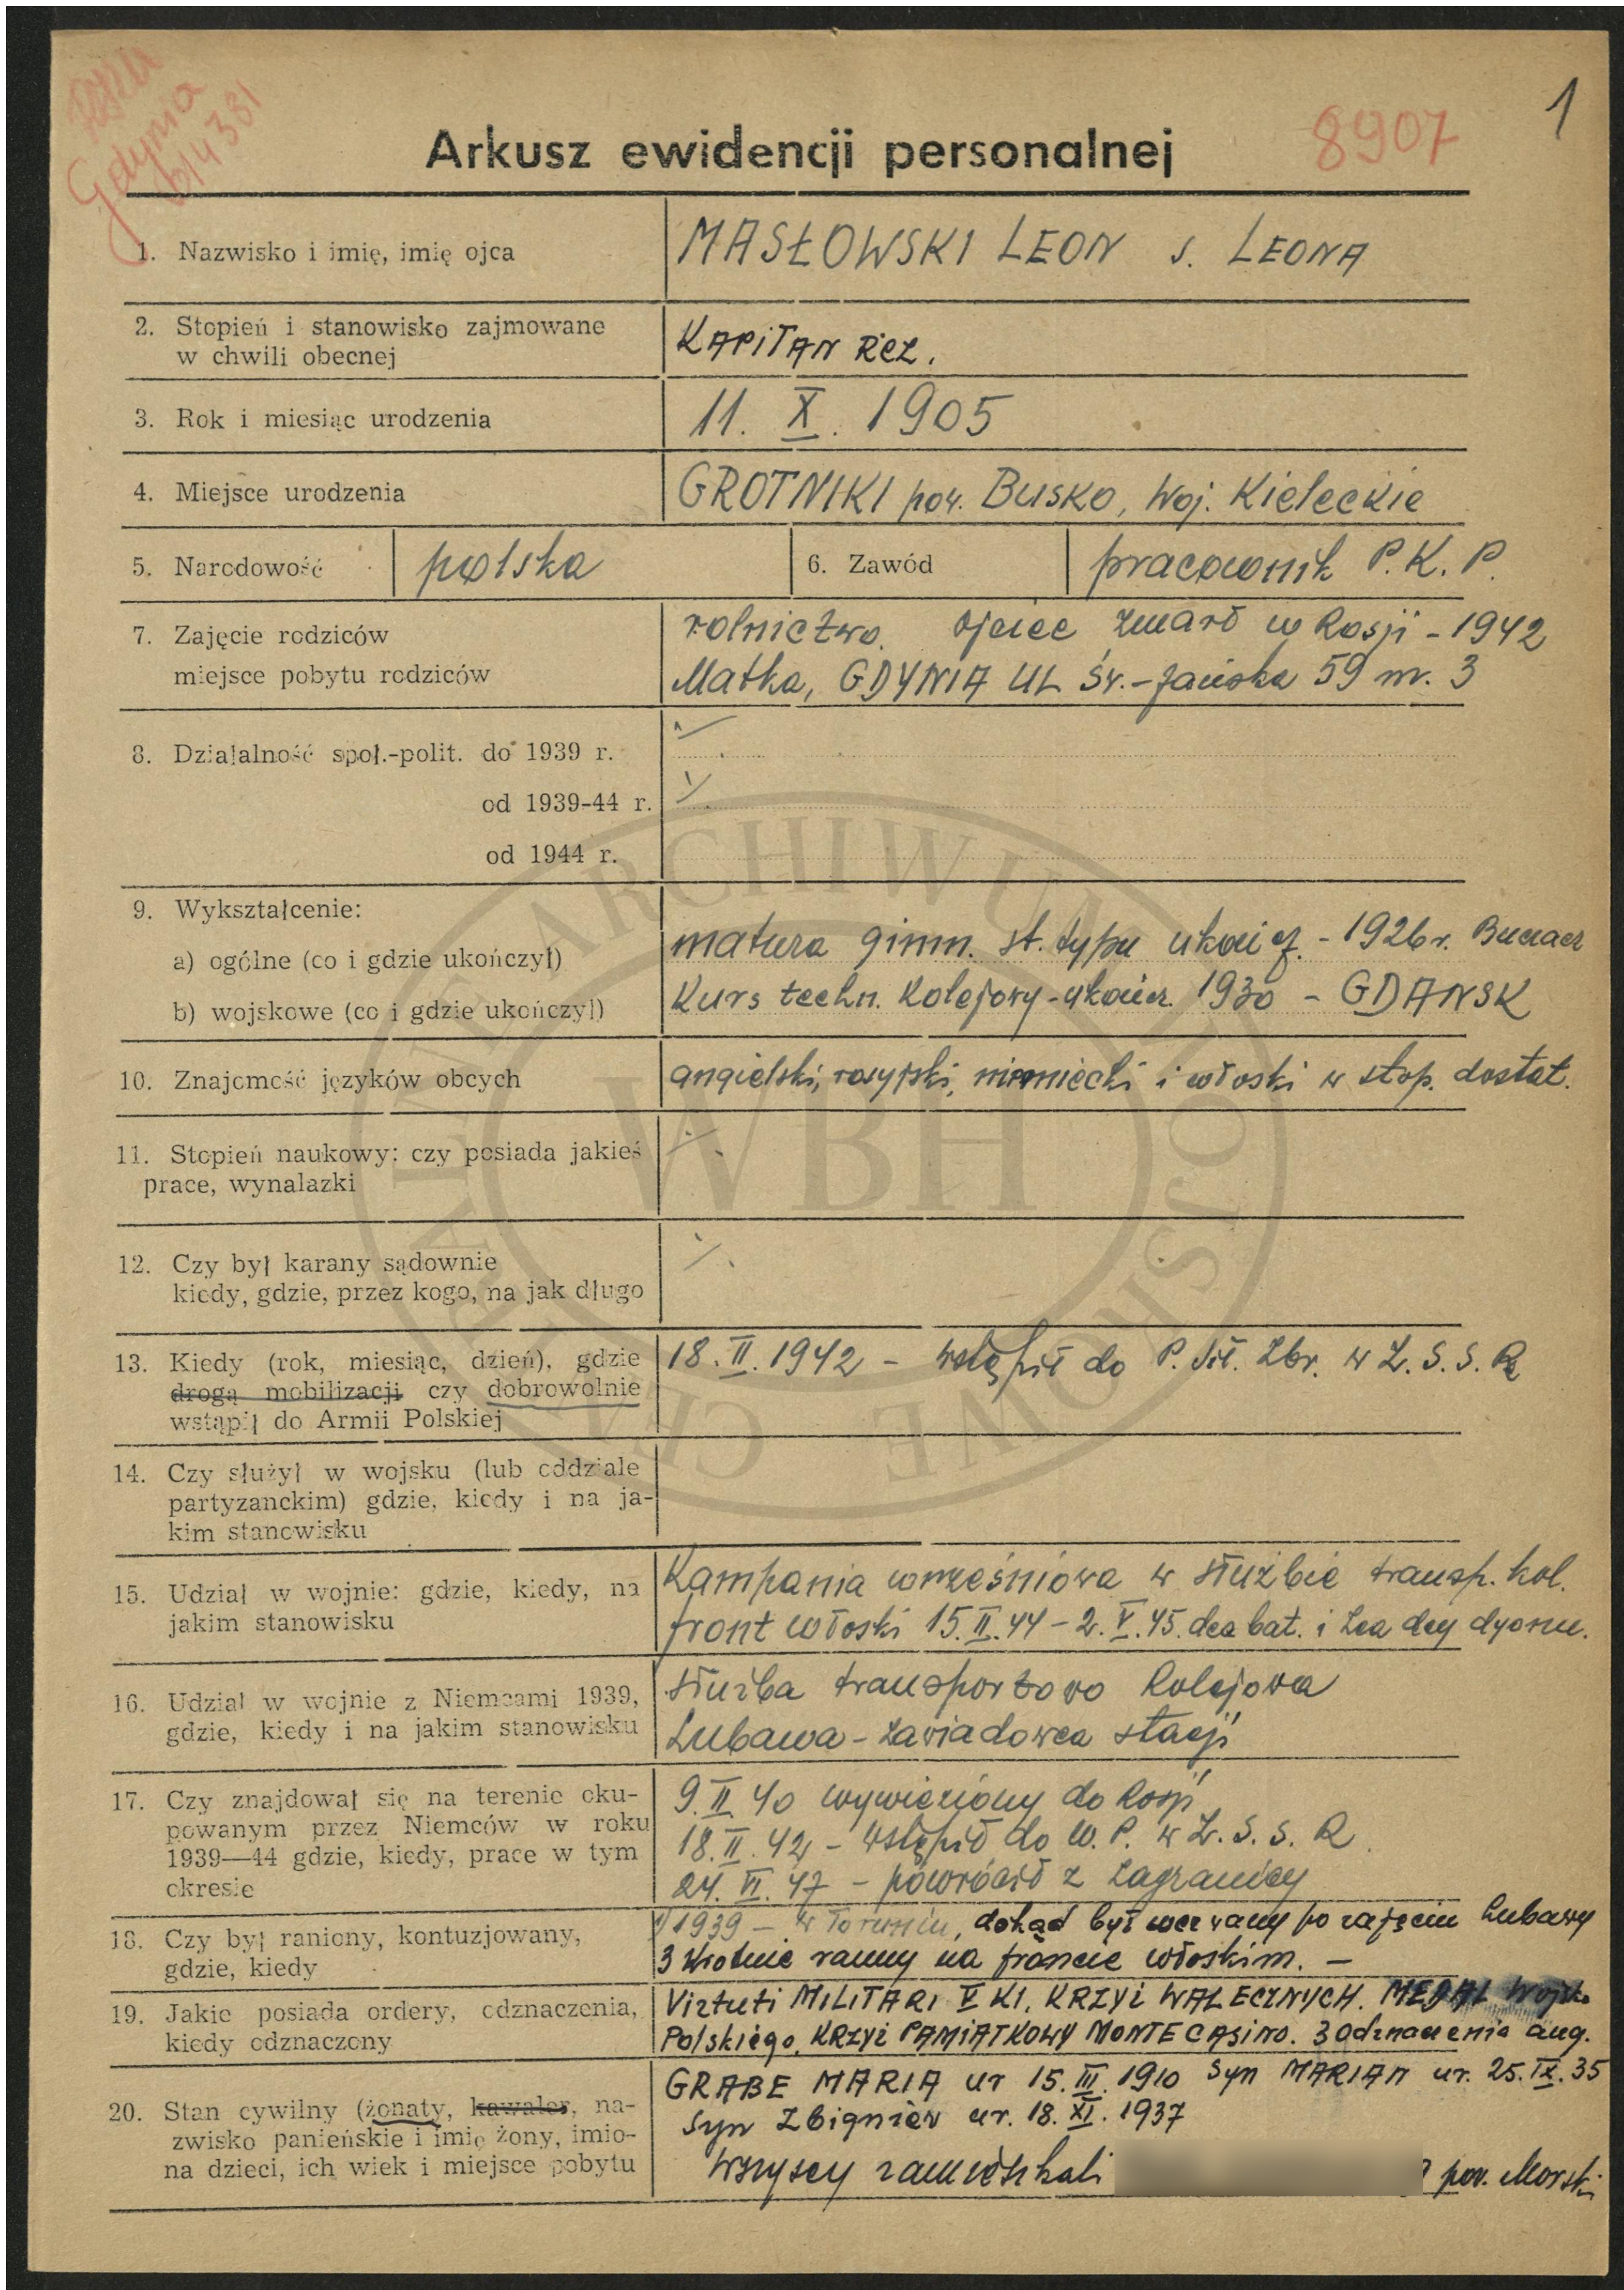 Gdynia
b/4381
8907
1
Arkusz ewidencji personalnej
1. Nazwisko i imię, imię ojca
MASŁOWSKI LEON s. LEONA
2. Stopień i stanowisko zajmowane
w chwili obecnej
KAPITAN REZ.
3. Rok i miesiąc urodzenia
11. X. 1905
4. Miejsce urodzenia
GROTNIKI pow. BUSKO, Woj. Kieleckie
5. Narodowość
polska
6. Zawód
pracownik P.K.P.
7. Zajęcie rodziców
rolnictwo. ojciec zmarł w Rosji - 1942
miejsce pobytu rodziców
Matka, GDYNIA UL Św.-Jańska 59 m. 3
8. Działalność społ.-polit. do 1939 r.
od 1939-44 r.
od 1944 r.
9. Wykształcenie:
a) ogólne (co i gdzie ukończył)
matura gimn. st. typu ukończ. - 1926 r. Buczacz
b) wojskowe (co i gdzie ukończył)
Kurs techn. Kolejowy - ukończ. 1930 - GDANSK
10. Znajomość języków obcych
angielski, rosyjski, niemiecki i włoski w stop. dostat.
11. Stopień naukowy: czy posiada jakieś
prace, wynalazki
12. Czy był karany sądownie
kiedy, gdzie, przez kogo, na jak długo
13. Kiedy (rok, miesiąc, dzień), gdzie
drogą mobilizacji czy dobrowolnie
wstąpił do Armii Polskiej
18. II. 1942 - wstąpił do P. Sił. Zbr. w Z. S. S. R
14. Czy służył w wojsku (lub oddziale
partyzanckim) gdzie, kiedy i na ja-
kim stanowisku
15. Udział w wojnie: gdzie, kiedy, na
jakim stanowisku
Kampania wrześniowa w służbie transp. kol.
front włoski 15. II. 44 - 2. V. 45. dca bat. i zca dcy dyonu.
16. Udział w wojnie z Niemcami 1939,
gdzie, kiedy i na jakim stanowisku
służba transportowo Kolejowa
Lubawa - zawiadowca stacji
17. Czy znajdował się na terenie oku-
powanym przez Niemców w roku
1939—44 gdzie, kiedy, prace w tym
okresie
9. II 40 wywieziony do Rosji
18. II. 42 - wstąpił do W. P. w Z. S. S. R.
24. VI. 47 - powrócił z zagranicy
18. Czy był raniony, kontuzjowany,
gdzie, kiedy
1939 - w Toruniu, dokąd był wezwany po zajęciu Lubawy
3 krotnie ranny na froncie włoskim. -
19. Jakie posiada ordery, odznaczenia,
kiedy odznaczony
Virtuti MILITARI V Kl. KRZYŻ WALECZNYCH. MEDAL Wojska
Polskiego, KRZYŻ PAMIĄTKOWY MONTE CASINO. 3 Odznaczenia ang.
20. Stan cywilny (żonaty, kawaler, na-
zwisko panieńskie i imię żony, imio-
na dzieci, ich wiek i miejsce pobytu
GRABE MARIA ur 15. III. 1910 Syn MARIAN ur. 25. IX. 35
Syn Zbigniew ur. 18. XI. 1937
Wszyscy zamieszkali pow. Morski
CENTRALNE ARCHIWUM WOJSKOWE
WBH